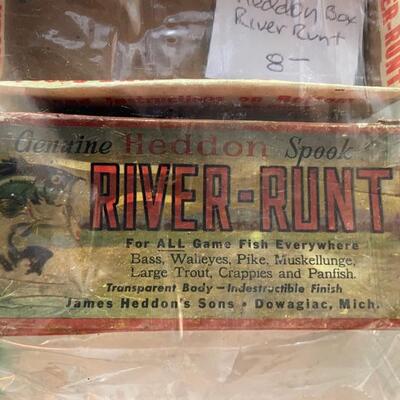 Heddon Box
River Runt
8-
ER-RUNT
Instructions on
Genuine Heddon Spook
RIVER-RUNT
For ALL Game Fish Everywhere
Bass, Walleyes, Pike, Muskellunge,
Large Trout, Crappies and Panfish.
Transparent Body - Indestructible Finish
James Heddon's Sons • Dowagiac, Mich.